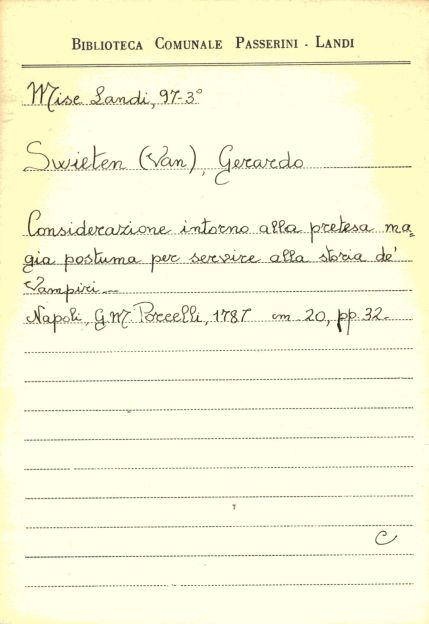 BIBLIOTECA COMUNALE PASSERINI - LANDI
Misc Landi, 97-3°
Swieten (Van), Gerardo
Considerazione intorno alla pretesa ma=
gia postuma per servire alla storia de'
Vampiri...
Napoli, G M Porcelli, 1787 cm 20, pp. 32-
C